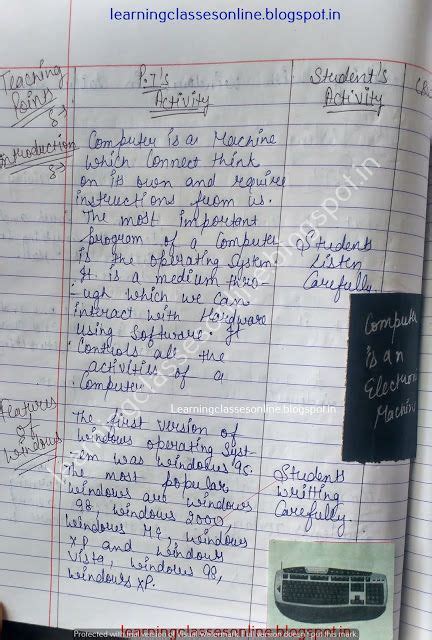 learningclassesonline.blogspot.in
Teaching Points
P.T's Activity
Student's Activity
Introduction
Computer is a Machine
which Connect think
on its own and require
instructions from us.
The most important
program of a Computer
is the operating System.
It is a medium thro-
ugh which we can
interact with Hardware
using Software. It
Controls all the
activities of a
Computer
Students
Listen
Carefully.
Computer
is an
Electron
Machin
Learningclassesonline.blogspot.in
Features
of
Windows
The first version of
windows operating syst-
em was windows '95.
The most popular
windows are windows
98, windows 2000,
windows ME, windows
XP and windows
Vista, windows 98,
windows XP.
Students
writing
Carefully.
learningclassesonline.blogspot.in
Protected with trial version of Visual Watermark. Full version doesn't put this mark.